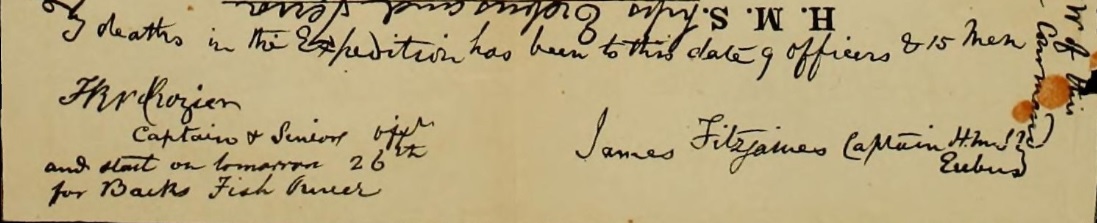 H. M. S. ships Erebus and Terror
by deaths in the Expedition has been to this date 9 officers & 15 Men
James Fitzjames Captain H.M.S.
Erebus
FRM Crozier
Captain & Senior Offr
and start on tomorrow 26th
for Backs Fish River
W of this